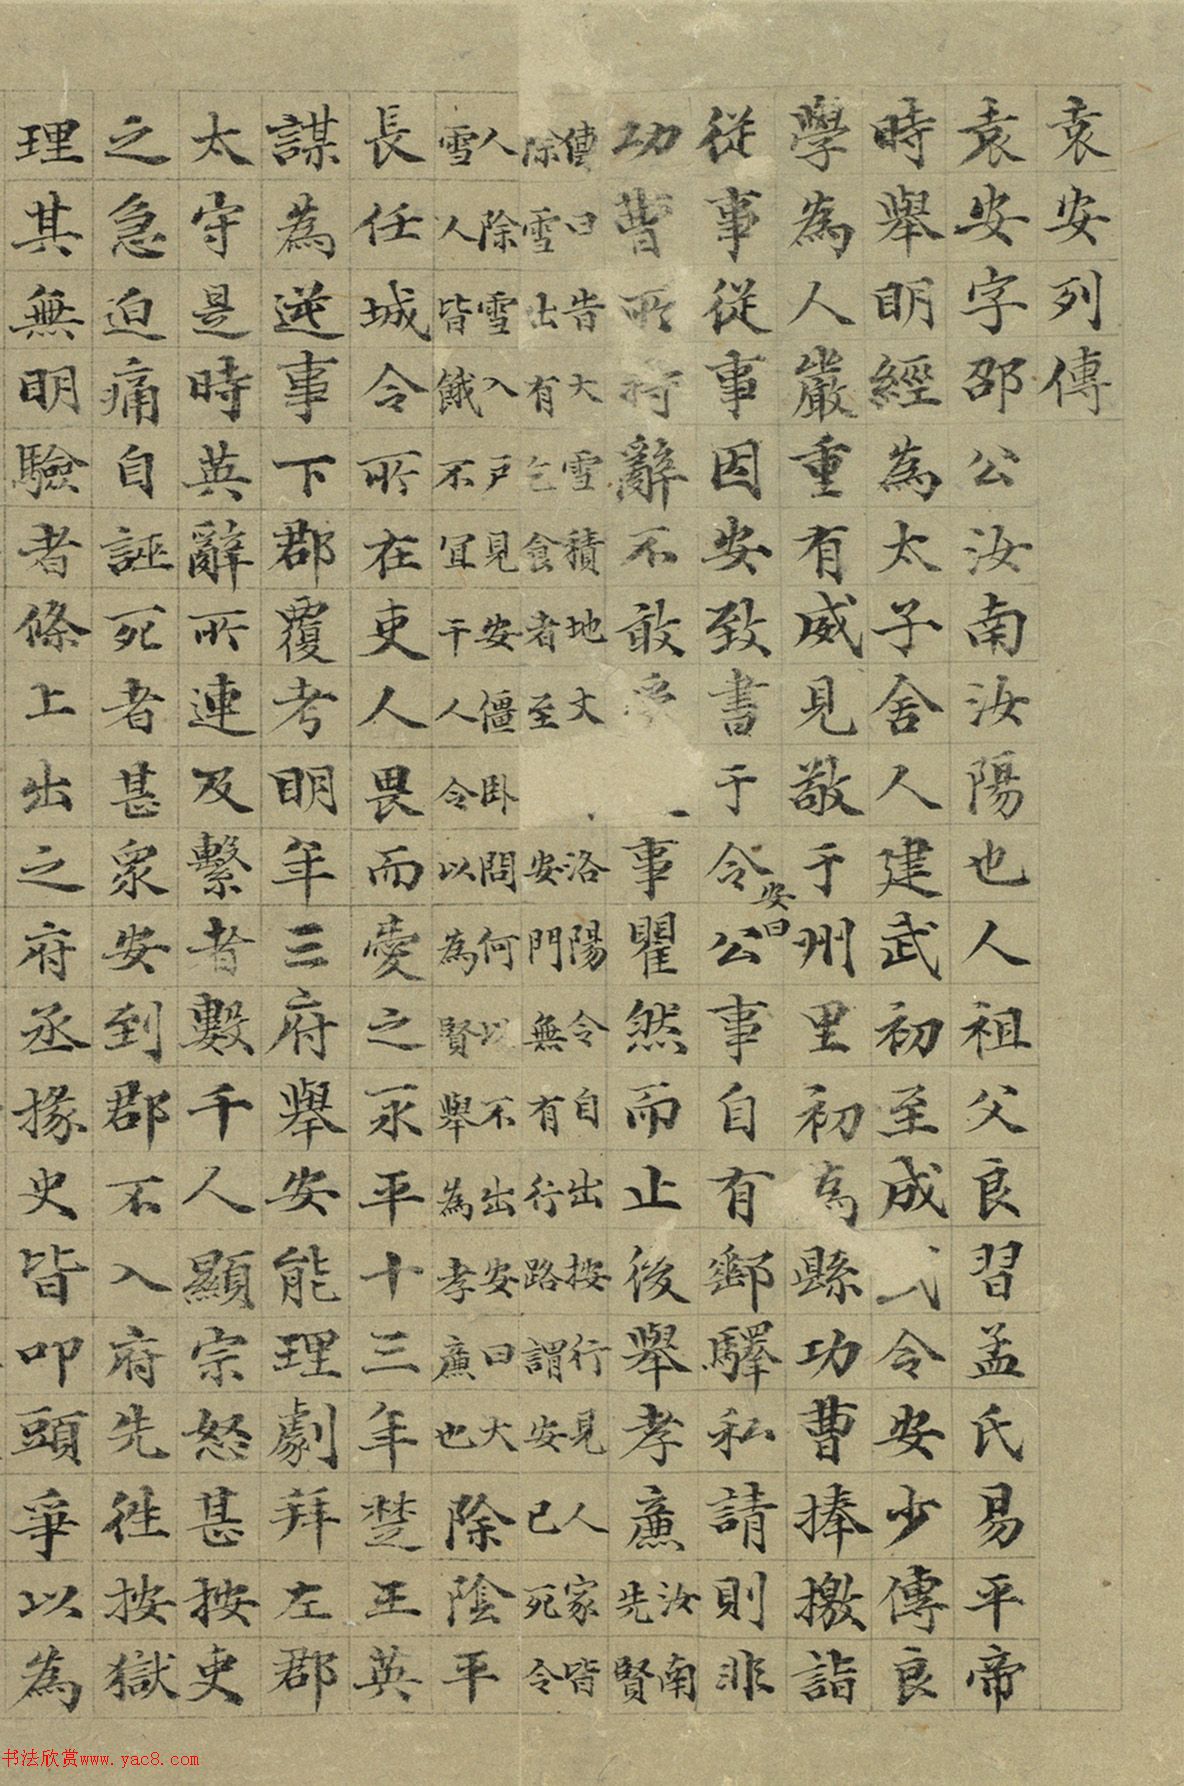 袁安列傳
袁安字邵公汝南汝陽也人祖父良習孟氏易平帝
時舉明經為太子舍人建武初至成令安少傳良
學為人嚴重有威見敬于州里初為縣功曹捧檄詣
從事從事因安致書于令安曰公事自有郵驛私請則非
功曹所持辭不敢事瞿然而止後舉孝廉汝南先賢
傳曰告大雪積地丈洛陽令自出按行見人家皆
除雪出有乞食者至安門無有行路謂安已死令
人除雪入戶見安僵卧問何以不出安曰大
雪人皆餓不宜干人令以為賢舉為孝廉也除陰平
長任城令所在吏人畏而愛之永平十三年楚王英
謀為逆事下郡覆考明年三府舉安能理劇拜左郡
太守是時英辭所連及繫者數千人顯宗怒甚按吏
之急迫痛自誣死者甚衆安到郡不入府先徃按獄
理其無明驗者條上出之府丞掾史皆叩頭爭以為
书法欣赏www.yac8.com